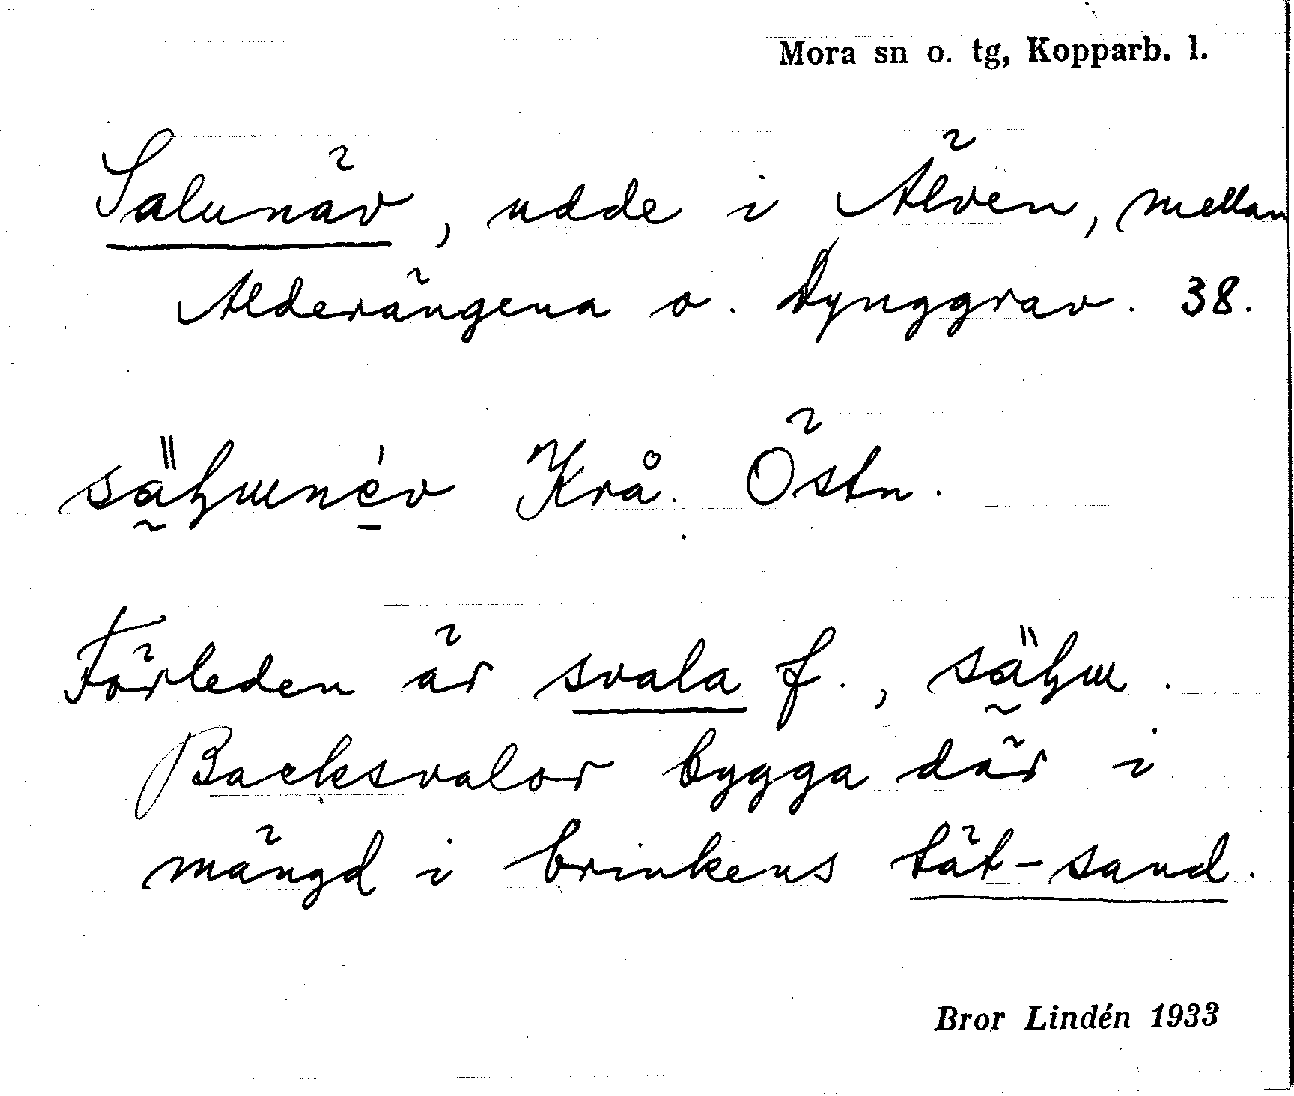 Mora sn o. tg, Kopparb. l.
Salunäv, udde i Älven, mellan
Alderängena o. Dynggrav. 38.
Krå. Östn.
Förleden är svala f.,
Backsvalor bygga där i
mängd i brinkens tät-sand.
Bror Lindén 1933